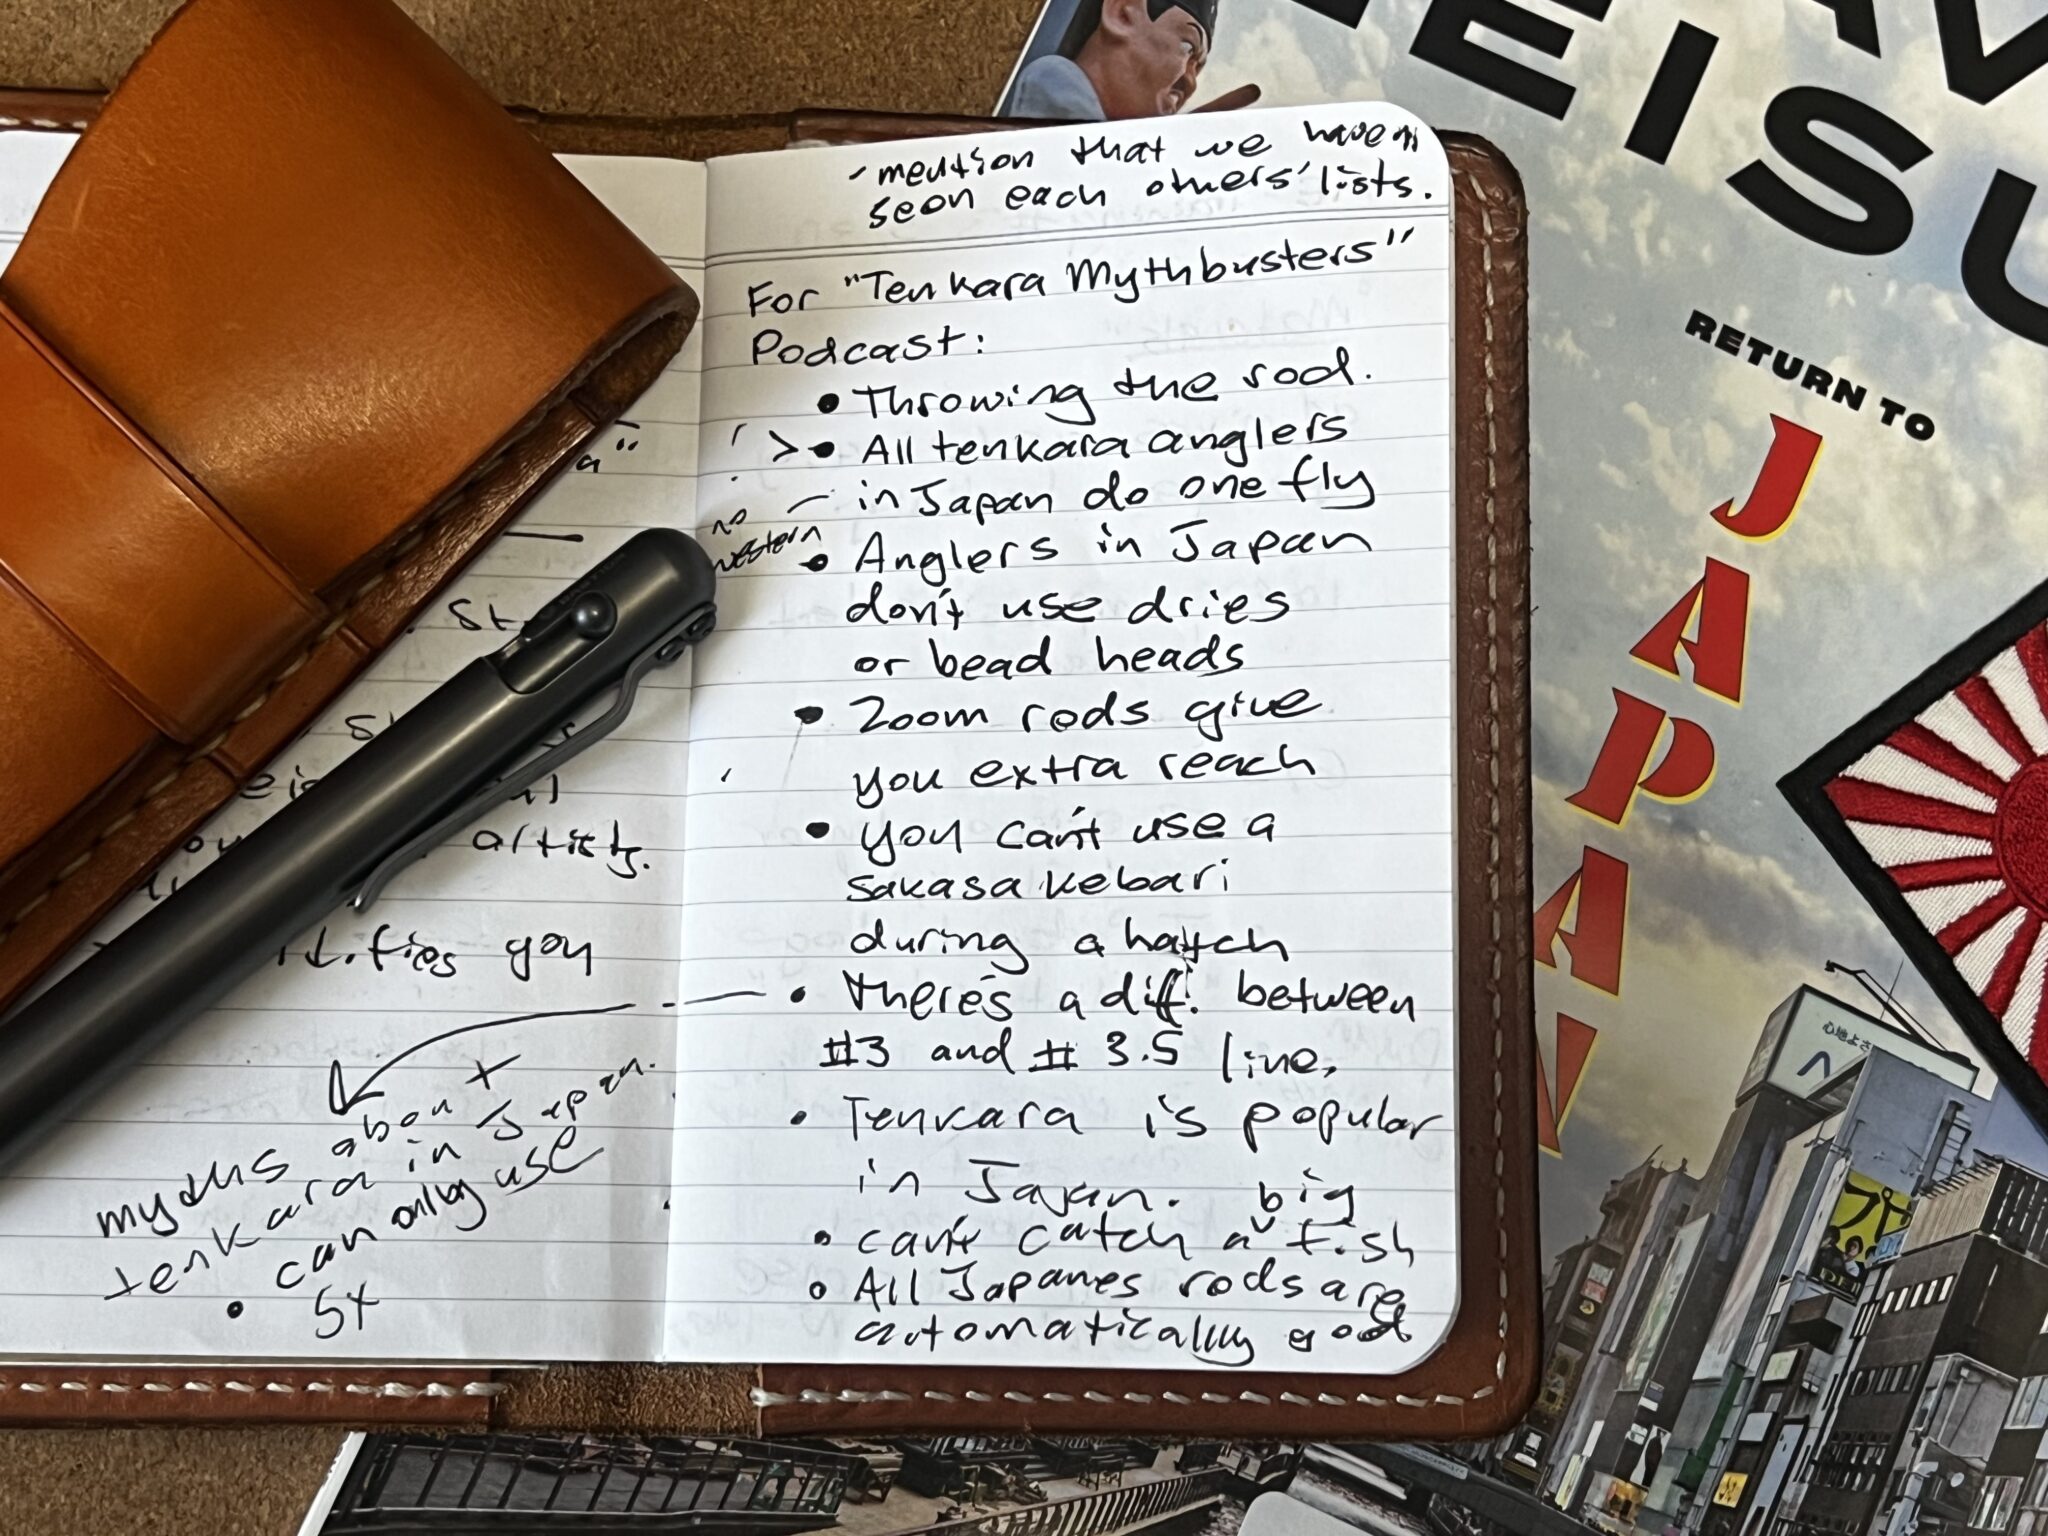 - mention that we haven't
seen each others' lists.
For "Tenkara Mythbusters"
Podcast:
• Throwing the rod.
> • All tenkara anglers
in Japan do one fly
no
western
• Anglers in Japan
don't use dries
or bead heads
• Zoom rods give
you extra reach
• you can't use a
sakasa kebari
during a hatch
• there's a diff. between
#3 and # 3.5 line.
• Tenkara is popular
in Japan.
• can't catch a big fish
• All Japanes rods are
automatically good
a"
artists.
you
myths about
tenkara in Japan.
• can only use
5x
EISU
RETURN TO
JAPAN
心地よさ